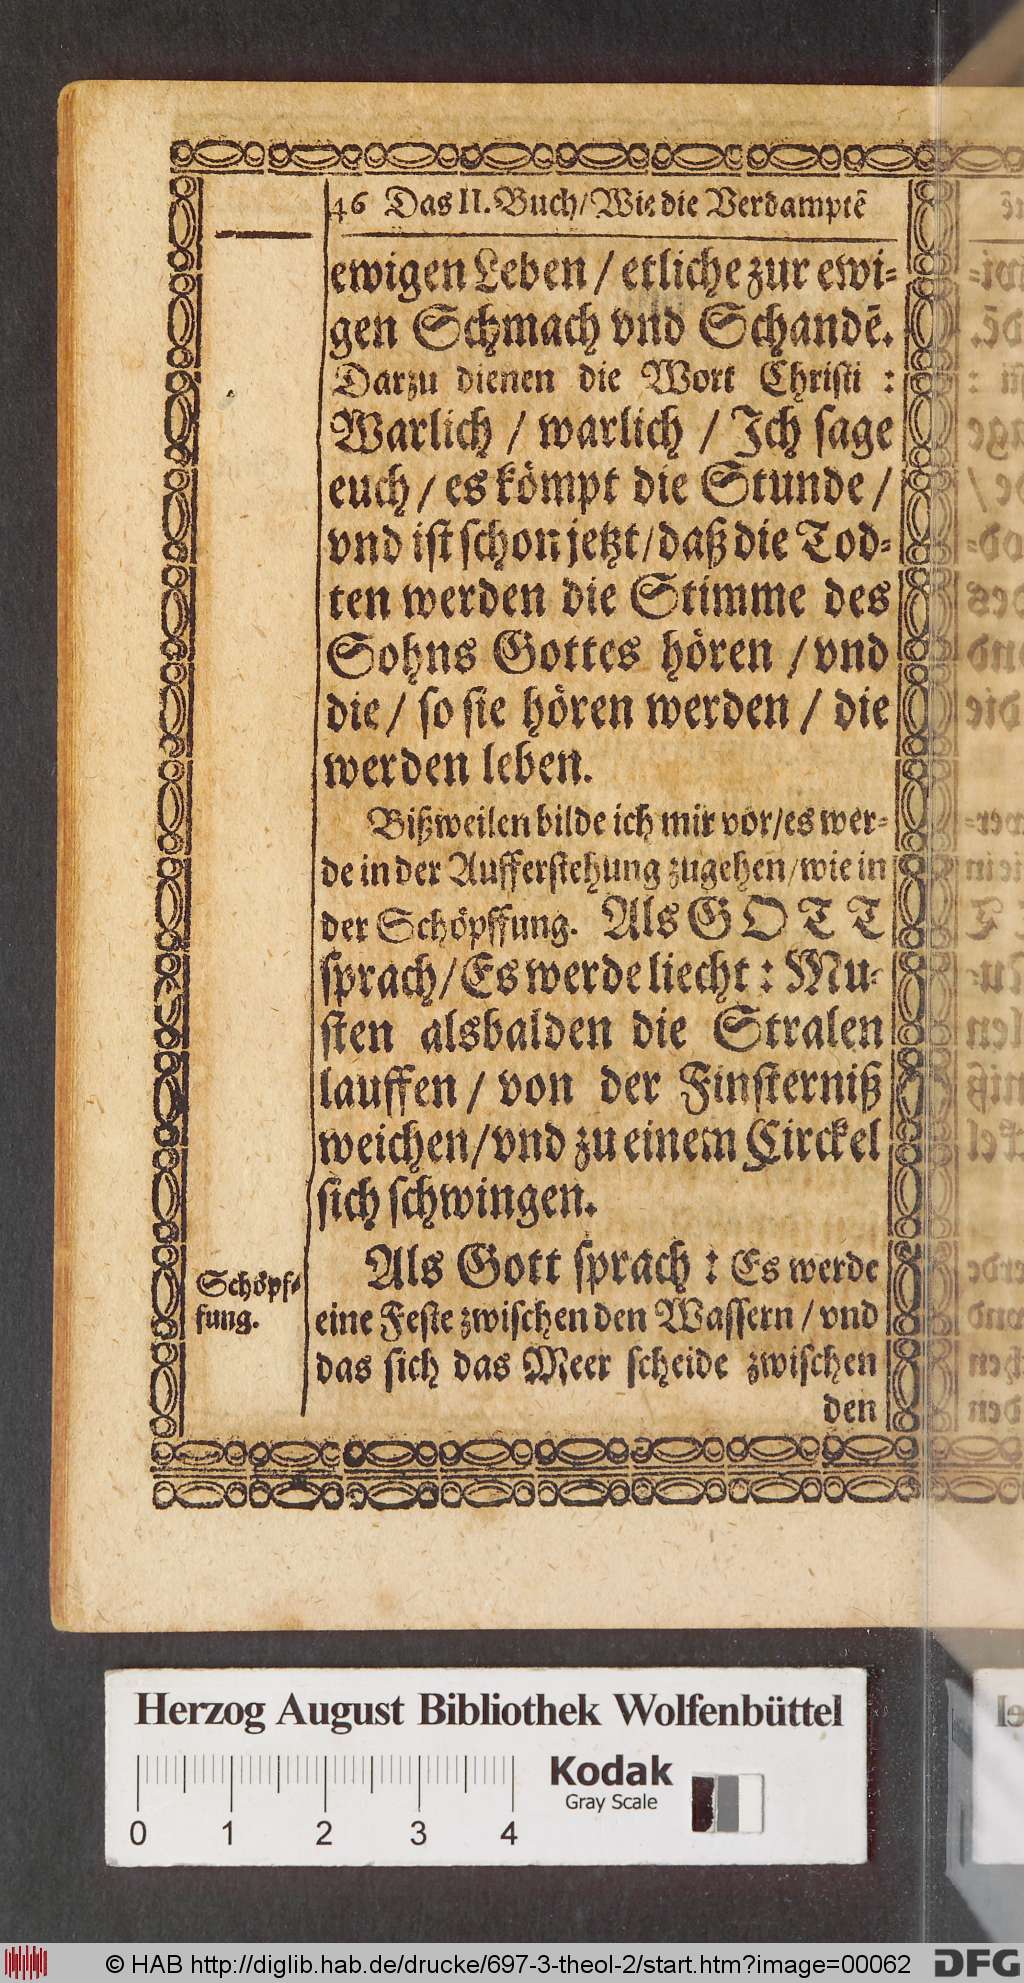 46 Das II. Buch/ Wie die Verdamptē
ewigen Leben / etliche zur ewi⸗
gen Schmach vnd Schandē.
Darzu dienen die Wort Christi :
Warlich / warlich / Ich sage
euch / es kömpt die Stunde /
vnd ist schon jetzt/ daß die Tod⸗
ten werden die Stimme des
Sohns Gottes hören / vnd
die / so sie hören werden / die
werden leben.
Bißweilen bilde ich mir vor/es wer⸗
de in der Aufferstehung zugehen/wie in
der Schöpffung. Als GOTT
sprach/ Es werde liecht : Mu⸗
sten alsbalden die Stralen
lauffen / von der Finsterniß
weichen/vnd zu einem Circkel
sich schwingen.
Als Gott sprach : Es werde
eine Feste zwischen den Wassern / vnd
das sich das Meer scheide zwischen
den
Schöpf⸗
fung.
Herzog August Bibliothek Wolfenbüttel
0 1 2 3 4
Kodak
Gray Scale
© HAB http://diglib.hab.de/drucke/697-3-theol-2/start.htm?image=00062
DFG